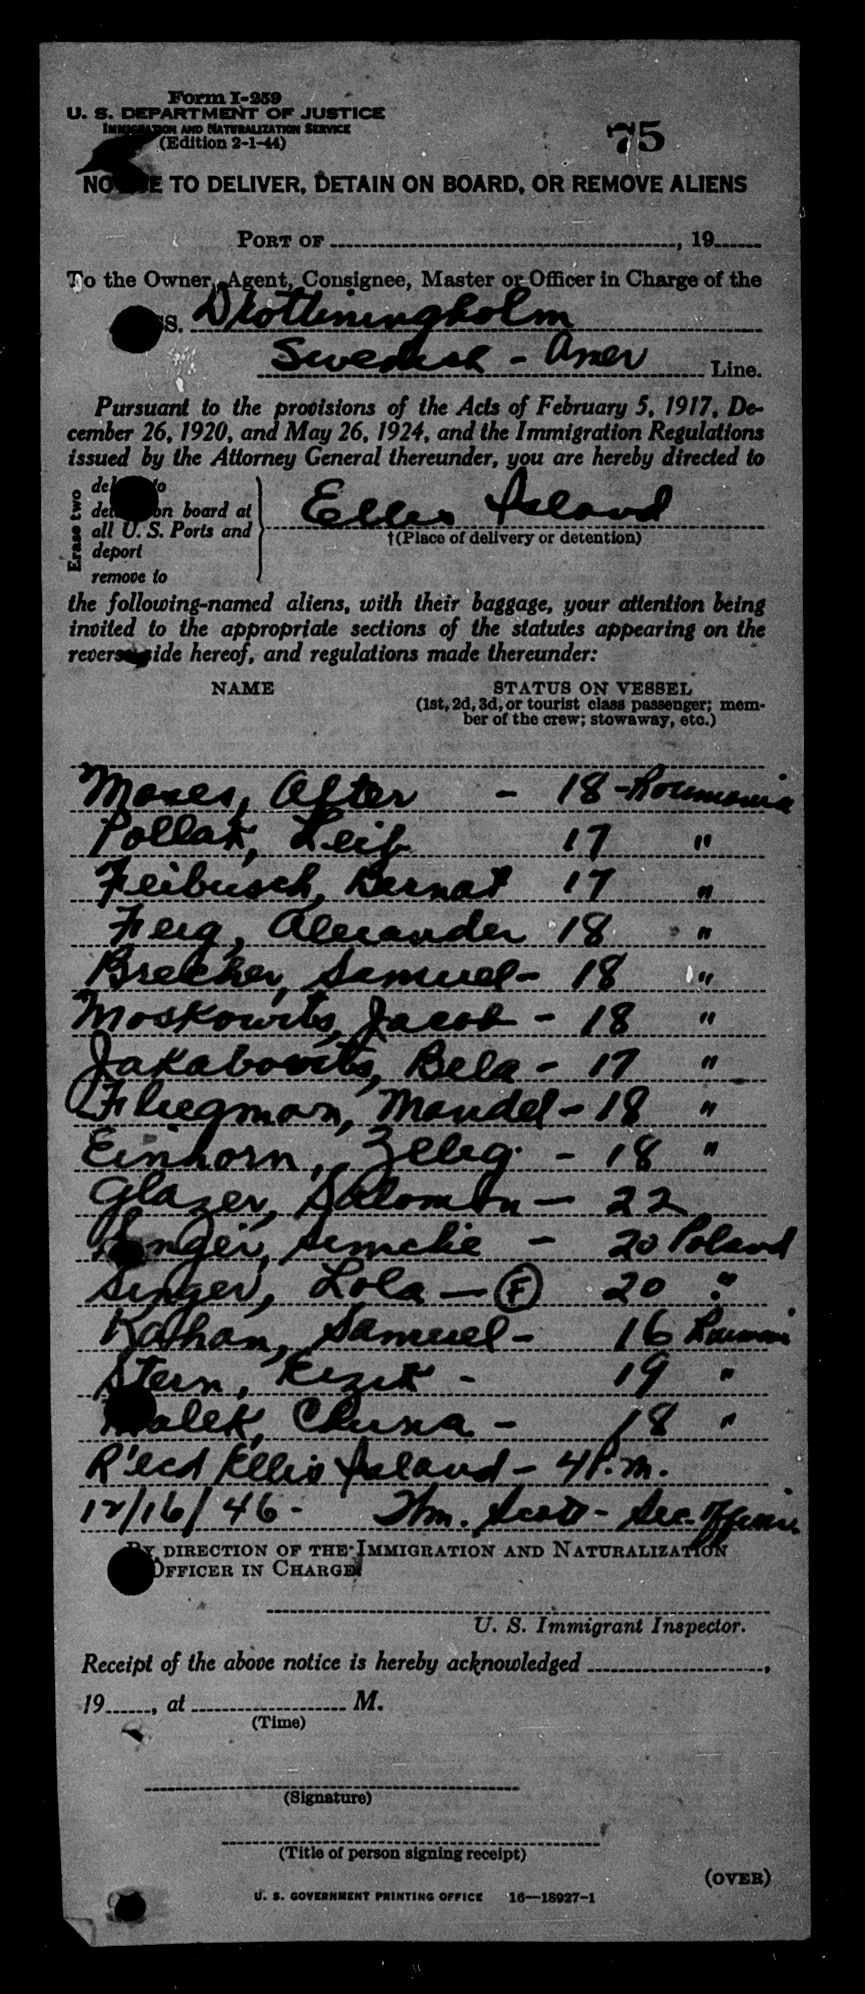 Form I-259
U. S. DEPARTMENT OF JUSTICE
IMMIGRATION AND NATURALIZATION SERVICE
(Edition 2-1-44)
75
NOTICE TO DELIVER, DETAIN ON BOARD, OR REMOVE ALIENS
PORT OF ______, 19___
To the Owner, Agent, Consignee, Master or Officer in Charge of the
SS. Drottiningholm
Swedish - Amer Line.
Pursuant to the provisions of the Acts of February 5, 1917, De-
cember 26, 1920, and May 26, 1924, and the Immigration Regulations
issued by the Attorney General thereunder, you are hereby directed to
Erase two
deliver to
detain on board at
all U. S. Ports and
deport
remove to
Ellis Island
†(Place of delivery or detention)
the following-named aliens, with their baggage, your attention being
invited to the appropriate sections of the statutes appearing on the
reverse side hereof, and regulations made thereunder:
NAME STATUS ON VESSEL
(1st, 2d, 3d, or tourist class passenger; mem-
ber of the crew; stowaway, etc.)
Moses, Alter - 18 - Roumania
Pollak, Leib 17 "
Feibusch, Bernat 17 "
Feig, Alexander 18 "
Brecher, Samuel - 18 "
Moskowits, Jacob - 18 "
Jakabovits, Bela - 17 "
Fliegman, Mendel - 18 "
Einhorn, Zelig - 18 "
Glazer, Salomon - 22
Singer, Simche - 20 Poland
Singer, Lola - (F) 20 "
Kahan, Samuel - 16
Stern, - 19 "
Malek, Chuna - 18 "
R'ecd Ellis Island - 4 P.m.
12/16/46 - Wm. Scott - Sec. Officer
BY DIRECTION OF THE IMMIGRATION AND NATURALIZATION
OFFICER IN CHARGE
U. S. Immigrant Inspector.
Receipt of the above notice is hereby acknowledged ______,
19___, at ______ M.
(Time)
(Signature)
(Title of person signing receipt)
(OVER)
U. S. GOVERNMENT PRINTING OFFICE 16—18927-1